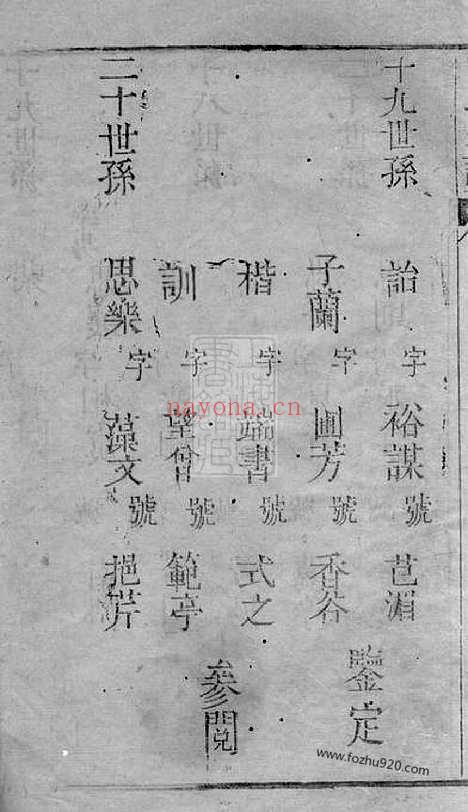 十九世孫 詒 字 裕謀 號 芑湄
子蘭 字 圃芳 號 香谷
鑒定
楷 字 端書 號 式之
訓 字 望曾 號 範亭
參閱
二十世孫 思樂 字 藻文 號 挹芹
nayona.cn
www.fozhu920.com